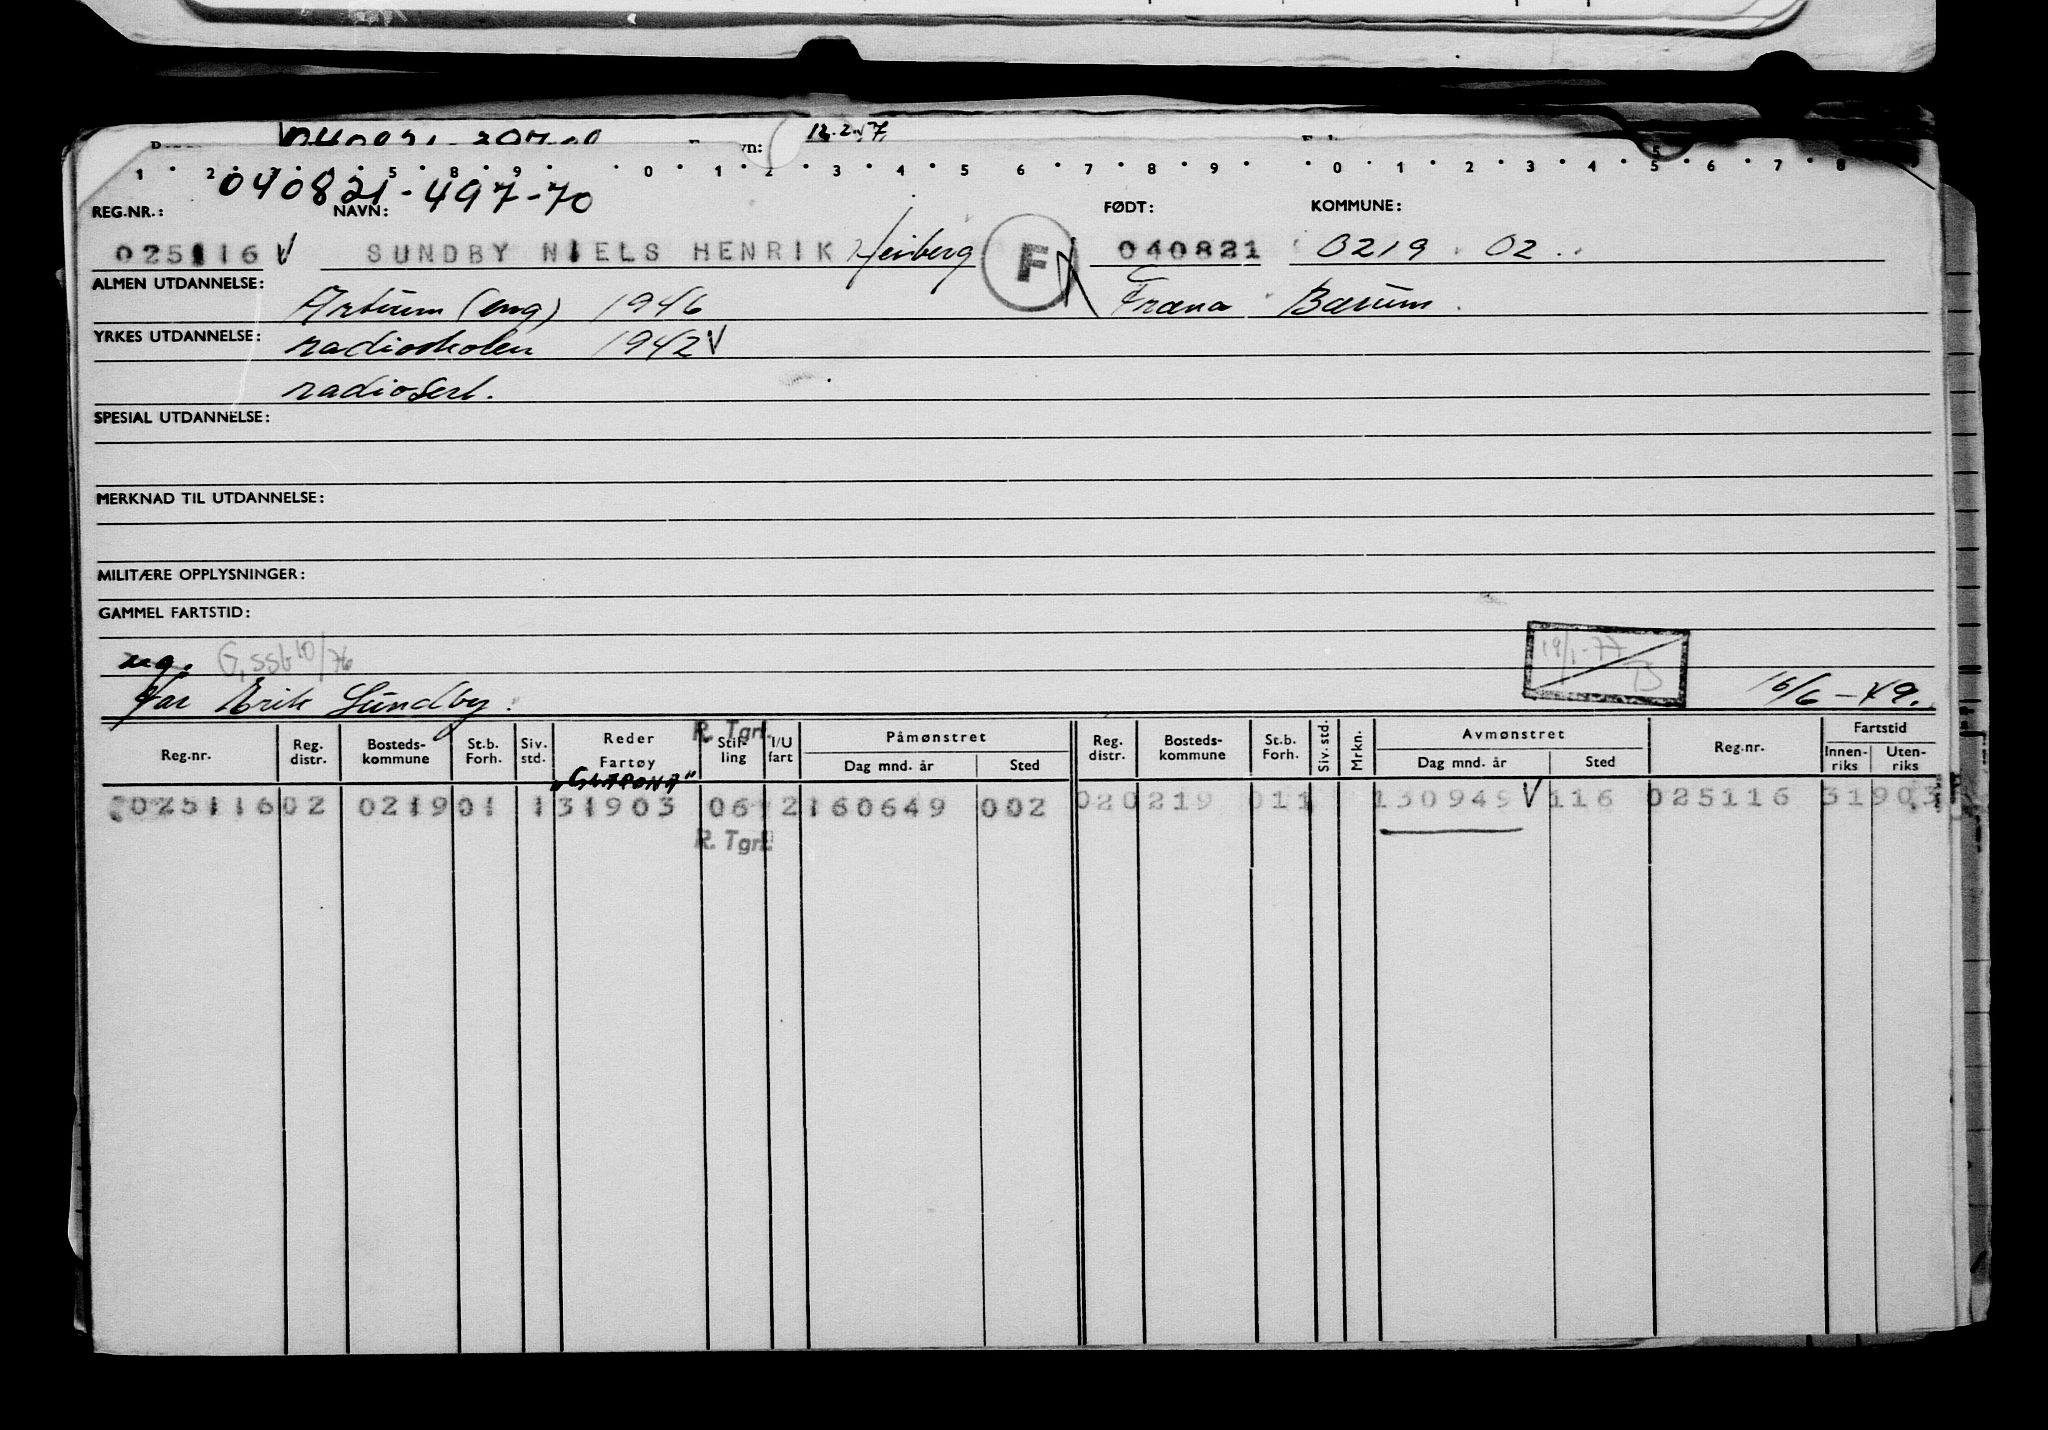 12.2.57
1 2 5 8 9 0 1 2 3 4 5 6 7 8 9 0 1 2 3 4 5 6 7 8
040821-497-70
REG.NR.: NAVN: FØDT: KOMMUNE:
025116 V SUNDBY NIELS HENRIK Heiberg F 040821 0219 02
ALMEN UTDANNELSE: Artium (eng) 1946 Fræna Bærum.
YRKES UTDANNELSE: radioskolen 1942 V
radiosert.
SPESIAL UTDANNELSE:
MERKNAD TIL UTDANNELSE:
MILITÆRE OPPLYSNINGER:
GAMMEL FARTSTID:
ug. 10/76 19/1-77
Far Erik Sundby. 16/6-49.
Reg.nr. Reg. distr. Bosteds-kommune St.b. Forh. Siv. std. Reder Fartøy Stil-ling I/U fart Påmønstret Dag mnd. år Sted Reg. distr. Bosteds-kommune St.b. Forh. Siv. std. Mrkn. Avmønstret Dag mnd. år Sted Reg.nr. Fartstid Innen-riks Uten-riks
R. Tgrf.
025116 02 0219 01 1 31903 06 2 160649 002 02 0219 01 1 130949 V 116 025116 31903
R. Tgrf.